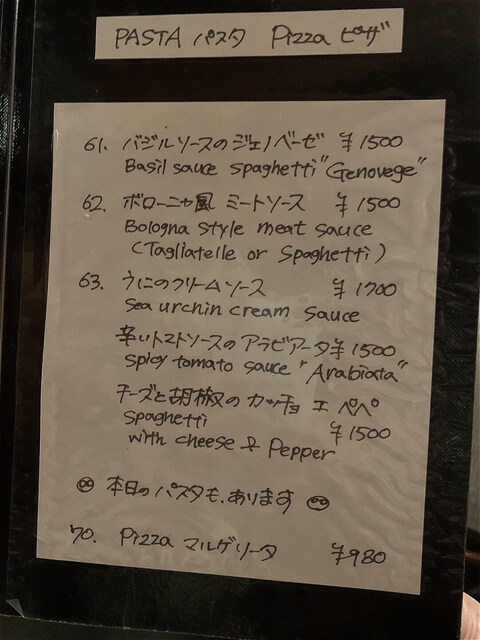 PASTA パスタ Pizza ピザ
61. バジルソースのジェノベーゼ ¥1500
Basil sauce spaghetti "Genovege"
62. ボローニャ風 ミートソース ¥1500
Bologna style meat sauce
(Tagliatelle or Spaghetti)
63. うにのクリームソース ¥1700
Sea urchin cream sauce
辛いトマトソースのアラビアータ ¥1500
spicy tomato sauce "Arabiata"
チーズと胡椒のカッチョ エ ペペ
Spaghetti ¥1500
with cheese & Pepper
本日のパスタも、あります
70. Pizza マルゲリータ ¥980